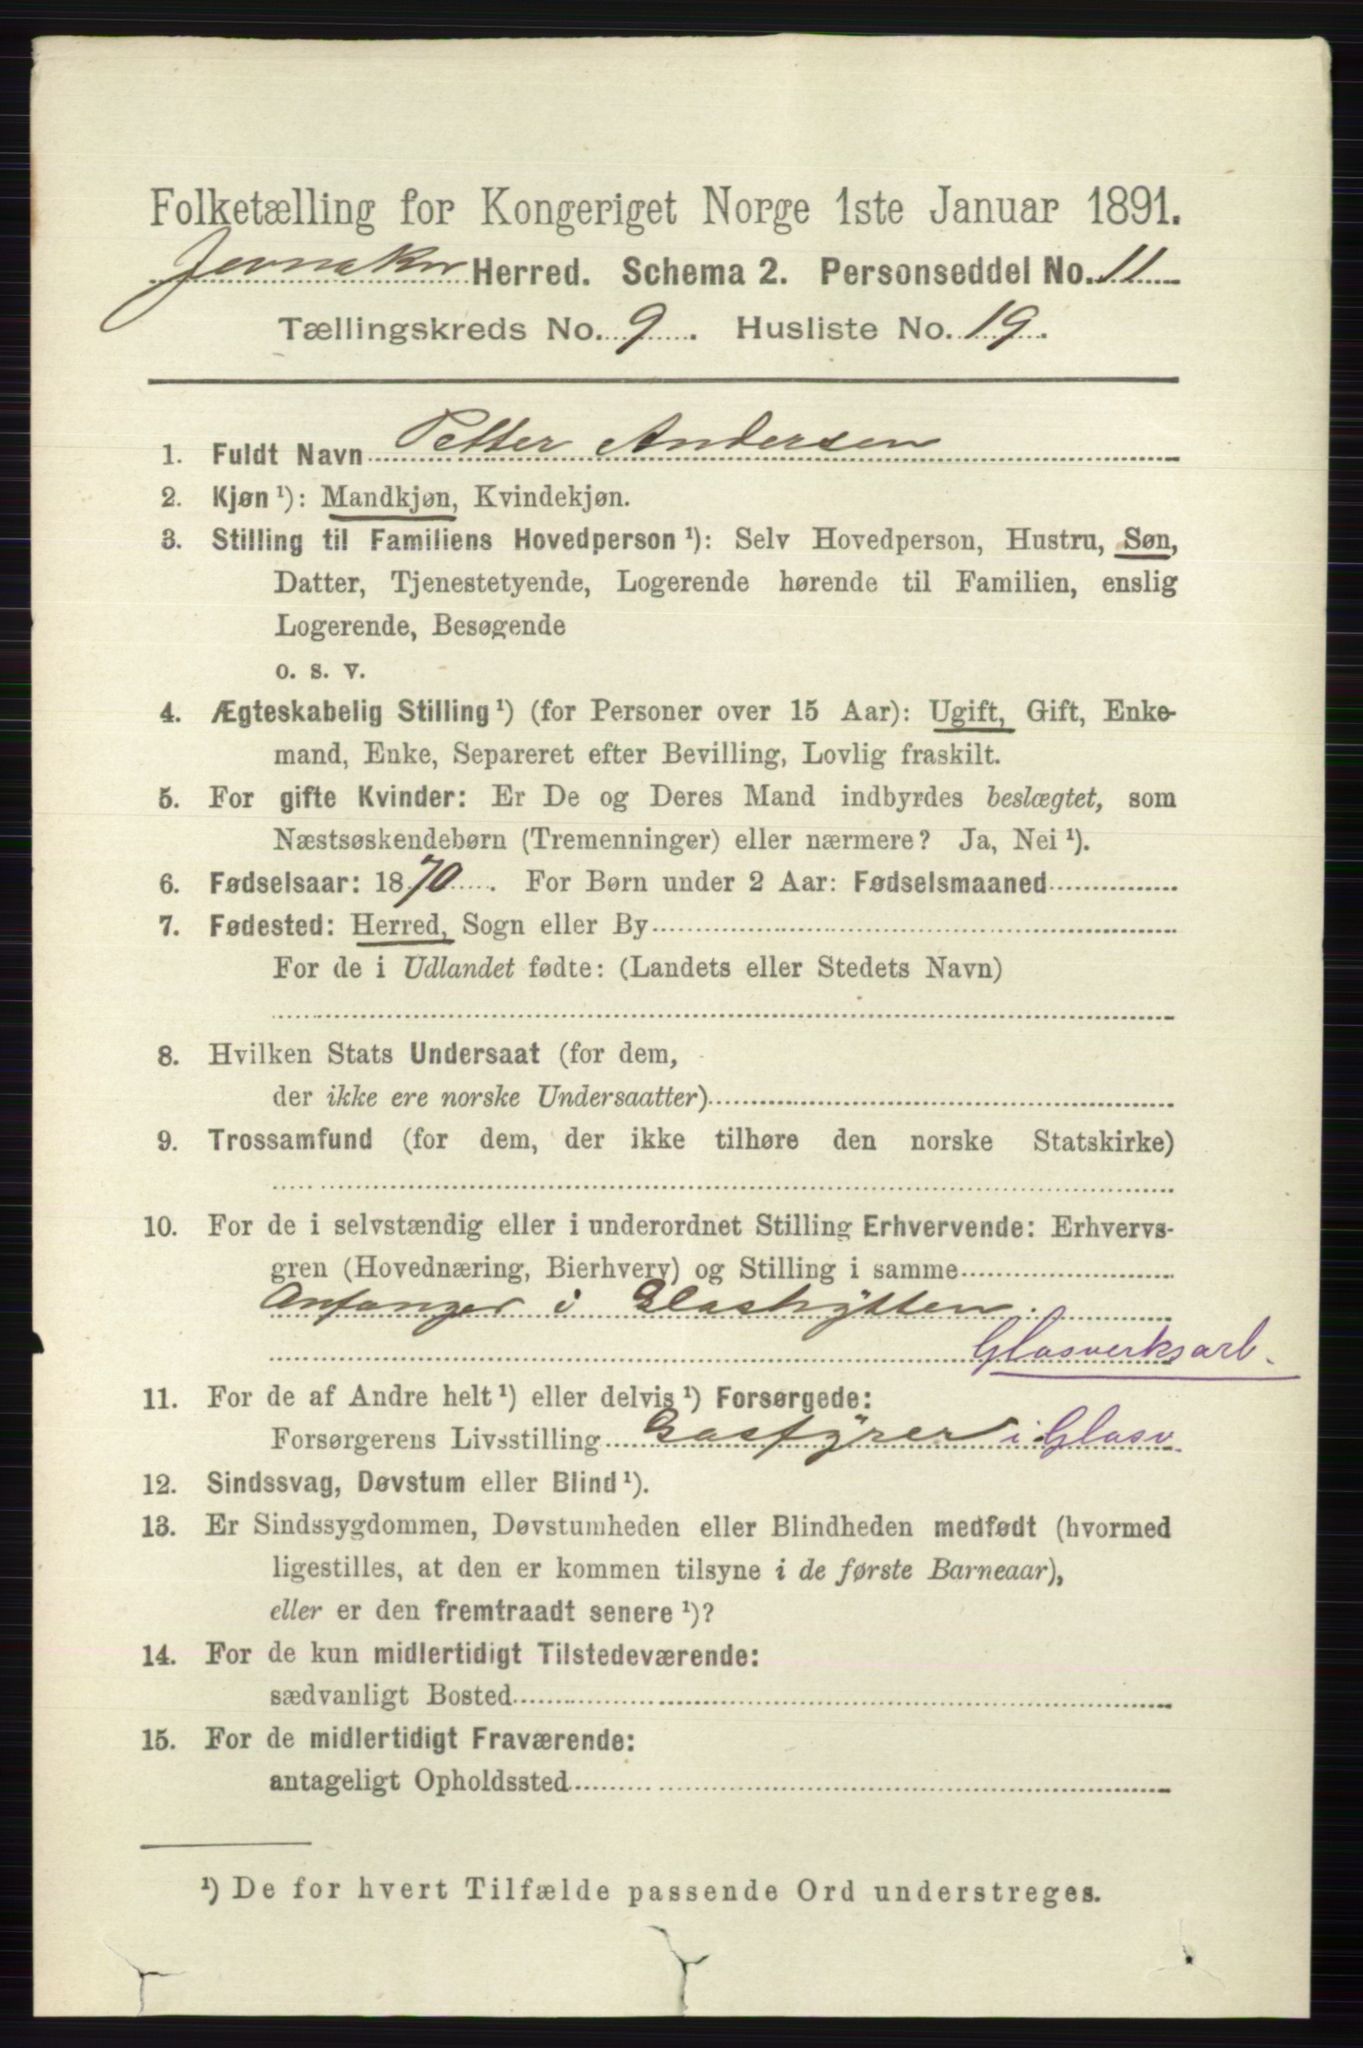 Folketælling for Kongeriget Norge 1ste Januar 1891.
Jevnaker Herred. Schema 2. Personseddel No. 11
Tællingskreds No. 9. Husliste No. 19.
1. Fuldt Navn Petter Andersen
2. Kjøn ¹): Mandkjøn, Kvindekjøn.
3. Stilling til Familiens Hovedperson ¹): Selv Hovedperson, Hustru, Søn,
Datter, Tjenestetyende, Logerende hørende til Familien, enslig
Logerende, Besøgende
o. s. v.
4. Ægteskabelig Stilling ¹) (for Personer over 15 Aar): Ugift, Gift, Enke-
mand, Enke, Separeret efter Bevilling, Lovlig fraskilt.
5. For gifte Kvinder: Er De og Deres Mand indbyrdes beslægtet, som
Næstsøskendebørn (Tremenninger) eller nærmere? Ja, Nei ¹).
6. Fødselsaar: 1870. For Børn under 2 Aar: Fødselsmaaned
7. Fødested: Herred, Sogn eller By
For de i Udlandet fødte: (Landets eller Stedets Navn)
8. Hvilken Stats Undersaat (for dem,
der ikke ere norske Undersaatter)
9. Trossamfund (for dem, der ikke tilhøre den norske Statskirke)
10. For de i selvstændig eller i underordnet Stilling Erhvervende: Erhvervs-
gren (Hovednæring, Bierhverv) og Stilling i samme
Anfanger i Glashytten.
Glasverksarb.
11. For de af Andre helt ¹) eller delvis ¹) Forsørgede:
Forsørgerens Livsstilling Gasfyrer i Glasv.
12. Sindssvag, Døvstum eller Blind ¹).
13. Er Sindssygdommen, Døvstumheden eller Blindheden medfødt (hvormed
ligestilles, at den er kommen tilsyne i de første Barneaar),
eller er den fremtraadt senere ¹)?
14. For de kun midlertidigt Tilstedeværende:
sædvanligt Bosted
15. For de midlertidigt Fraværende:
antageligt Opholdssted
¹) De for hvert Tilfælde passende Ord understreges.